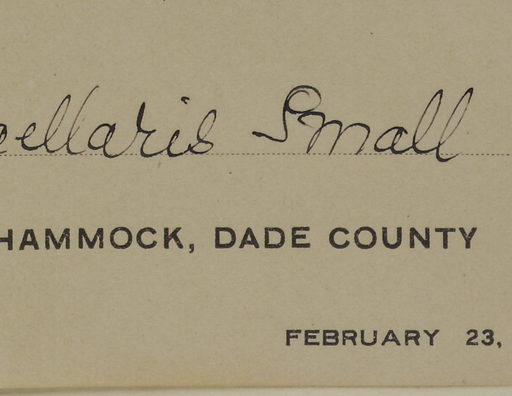 ellaris Small
HAMMOCK, DADE COUNTY
FEBRUARY 23,